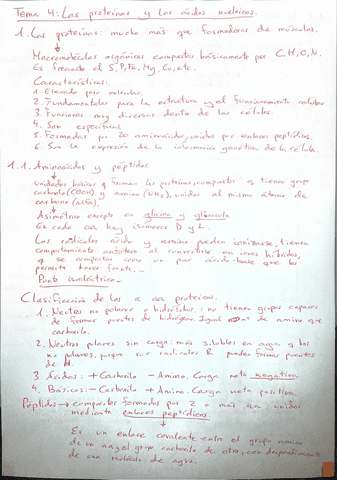 Tema 4: Las proteínas y los ácidos nucleicos.
1. Las proteínas: mucho más que formadoras de músculos.
Macromoléculas orgánicas compuestas básicamente por C, H, O, N.
Es frecuente el S, P, Fe, Mg, Cu, etc.
Características:
1. Elevado peso molecular.
2. Fundamentales para la estructura y el funcionamiento celular
3. Funciones muy diversas dentro de las células.
4. Son específicas
5. Formadas por 20 aminoácidos, unidos por enlaces peptídicos.
6. Son la expresión de la información genética de la célula.
1.1. Aminoácidos y péptidos.
unidades básicas q forman las proteínas, compuestos q tienen grupo
carboxilo (COOH) y amino (NH2), unidos al mismo átomo de
carbono (alfa).
Asimétrico excepto en glicina y
En cada aa hay isómeros D y L.
Los radicales ácido y amino pueden ionizarse, tienen
comportamiento anfótero al convertirse en iones híbridos,
q se comportan como un par ácido-base que les
permita hacer frente...
Punto isoeléctrico.
Clasificación de los α aa proteicos.
1. Neutros no polares o hidrófobos: no tienen grupos capaces
de formar puentes de hidrógeno. Igual nº de amino que
carboxilo.
2. Neutros polares sin carga: más solubles en agua q los
no polares, porque sus radicales R pueden formar puentes
de H.
3 Ácidos: + Carboxilo - Amino. Carga neta negativa
4. Básicos: - Carboxilo + Amino. Carga neta positiva.
Péptidos → compuestos formados por 2 o más aa unidos
mediante enlaces peptídicos
Es un enlace covalente entre el grupo amino
de un aa y el grupo carboxilo de otro, con desprendimiento
de una molécula de agua.